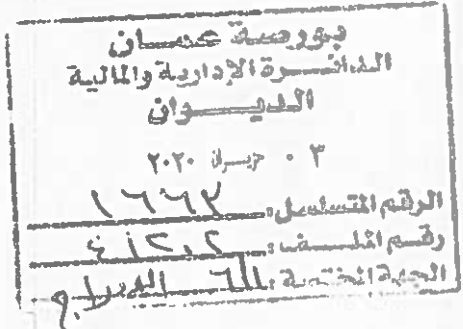 بورصة عمان
الدائرة الإدارية والمالية
الديوان
٣٠ حزيران ٢٠٢٠
الرقم المتسلسل: ١٦٦٧
رقم الملف:
الجهة المختصة: